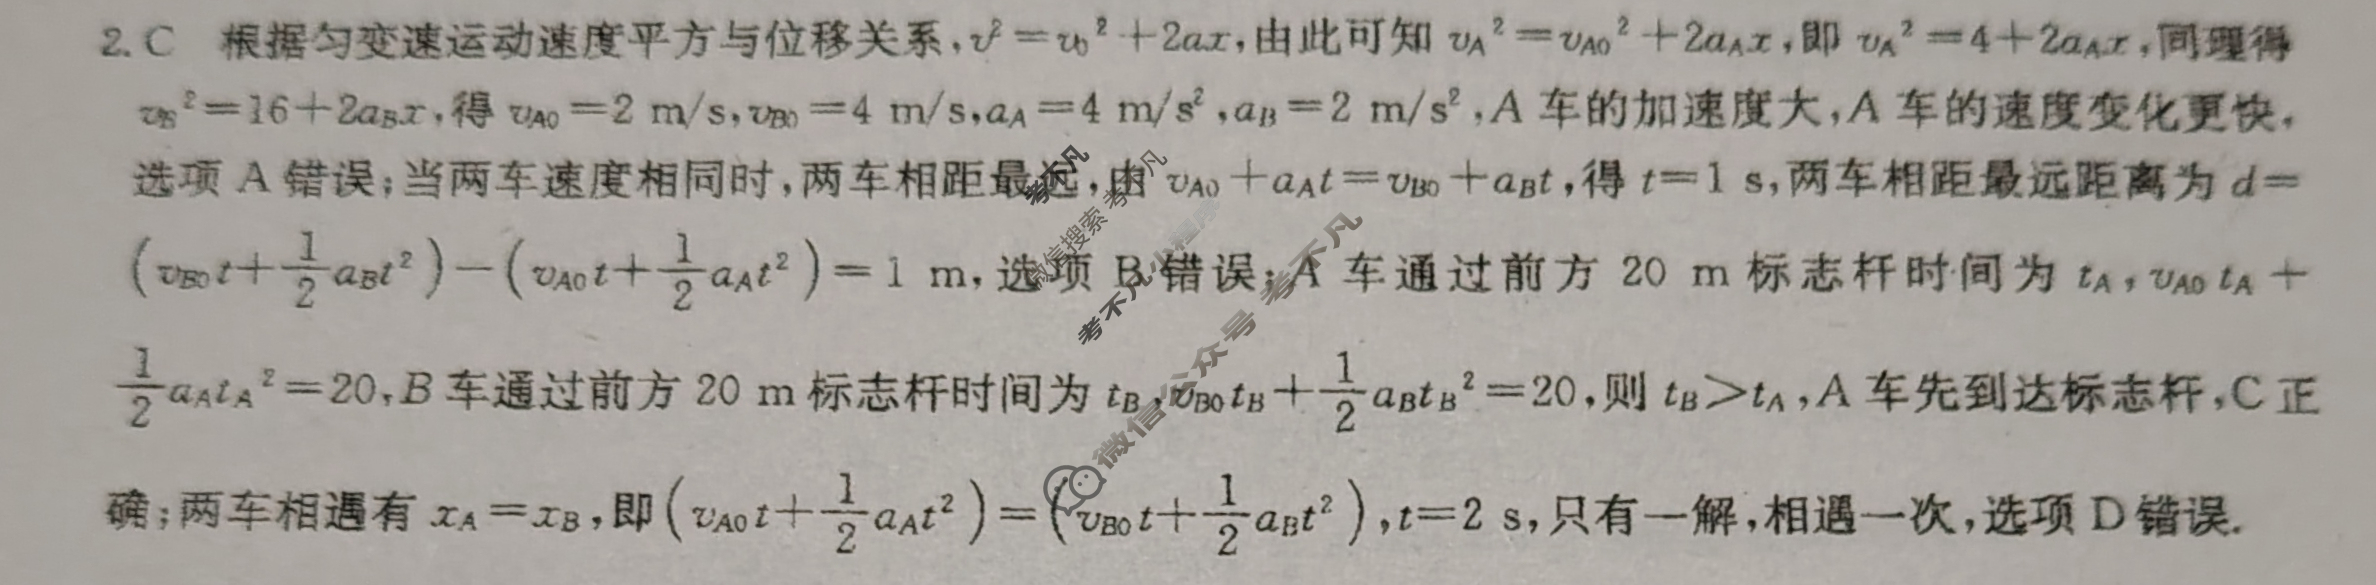 2. C 根据匀变速运动速度平方与位移关系,v²=v₀²+2ax,由此可知 v_A²=v_A0²+2a_A x,即 v_A²=4+2a_A x,同理得
v_B²=16+2a_B x,得 v_A0=2 m/s,v_B0=4 m/s,a_A=4 m/s²,a_B=2 m/s²,A 车的加速度大,A 车的速度变化更快,
选项 A 错误;当两车速度相同时,两车相距最远,由 v_A0+a_A t=v_B0+a_B t,得 t=1 s,两车相距最远距离为 d=
(v_B0 t+1/2 a_B t²)-(v_A0 t+1/2 a_A t²)=1 m,选项 B 错误;A 车通过前方 20 m 标志杆时间为 t_A,v_A0 t_A+
1/2 a_A t_A²=20,B 车通过前方 20 m 标志杆时间为 t_B,v_B0 t_B+1/2 a_B t_B²=20,则 t_B>t_A,A 车先到达标志杆,C 正
确;两车相遇有 x_A=x_B,即(v_A0 t+1/2 a_A t²)=(v_B0 t+1/2 a_B t²),t=2 s,只有一解,相遇一次,选项 D 错误.
考不凡
微信搜索 考不凡
考不凡小程序
微信公众号 考不凡